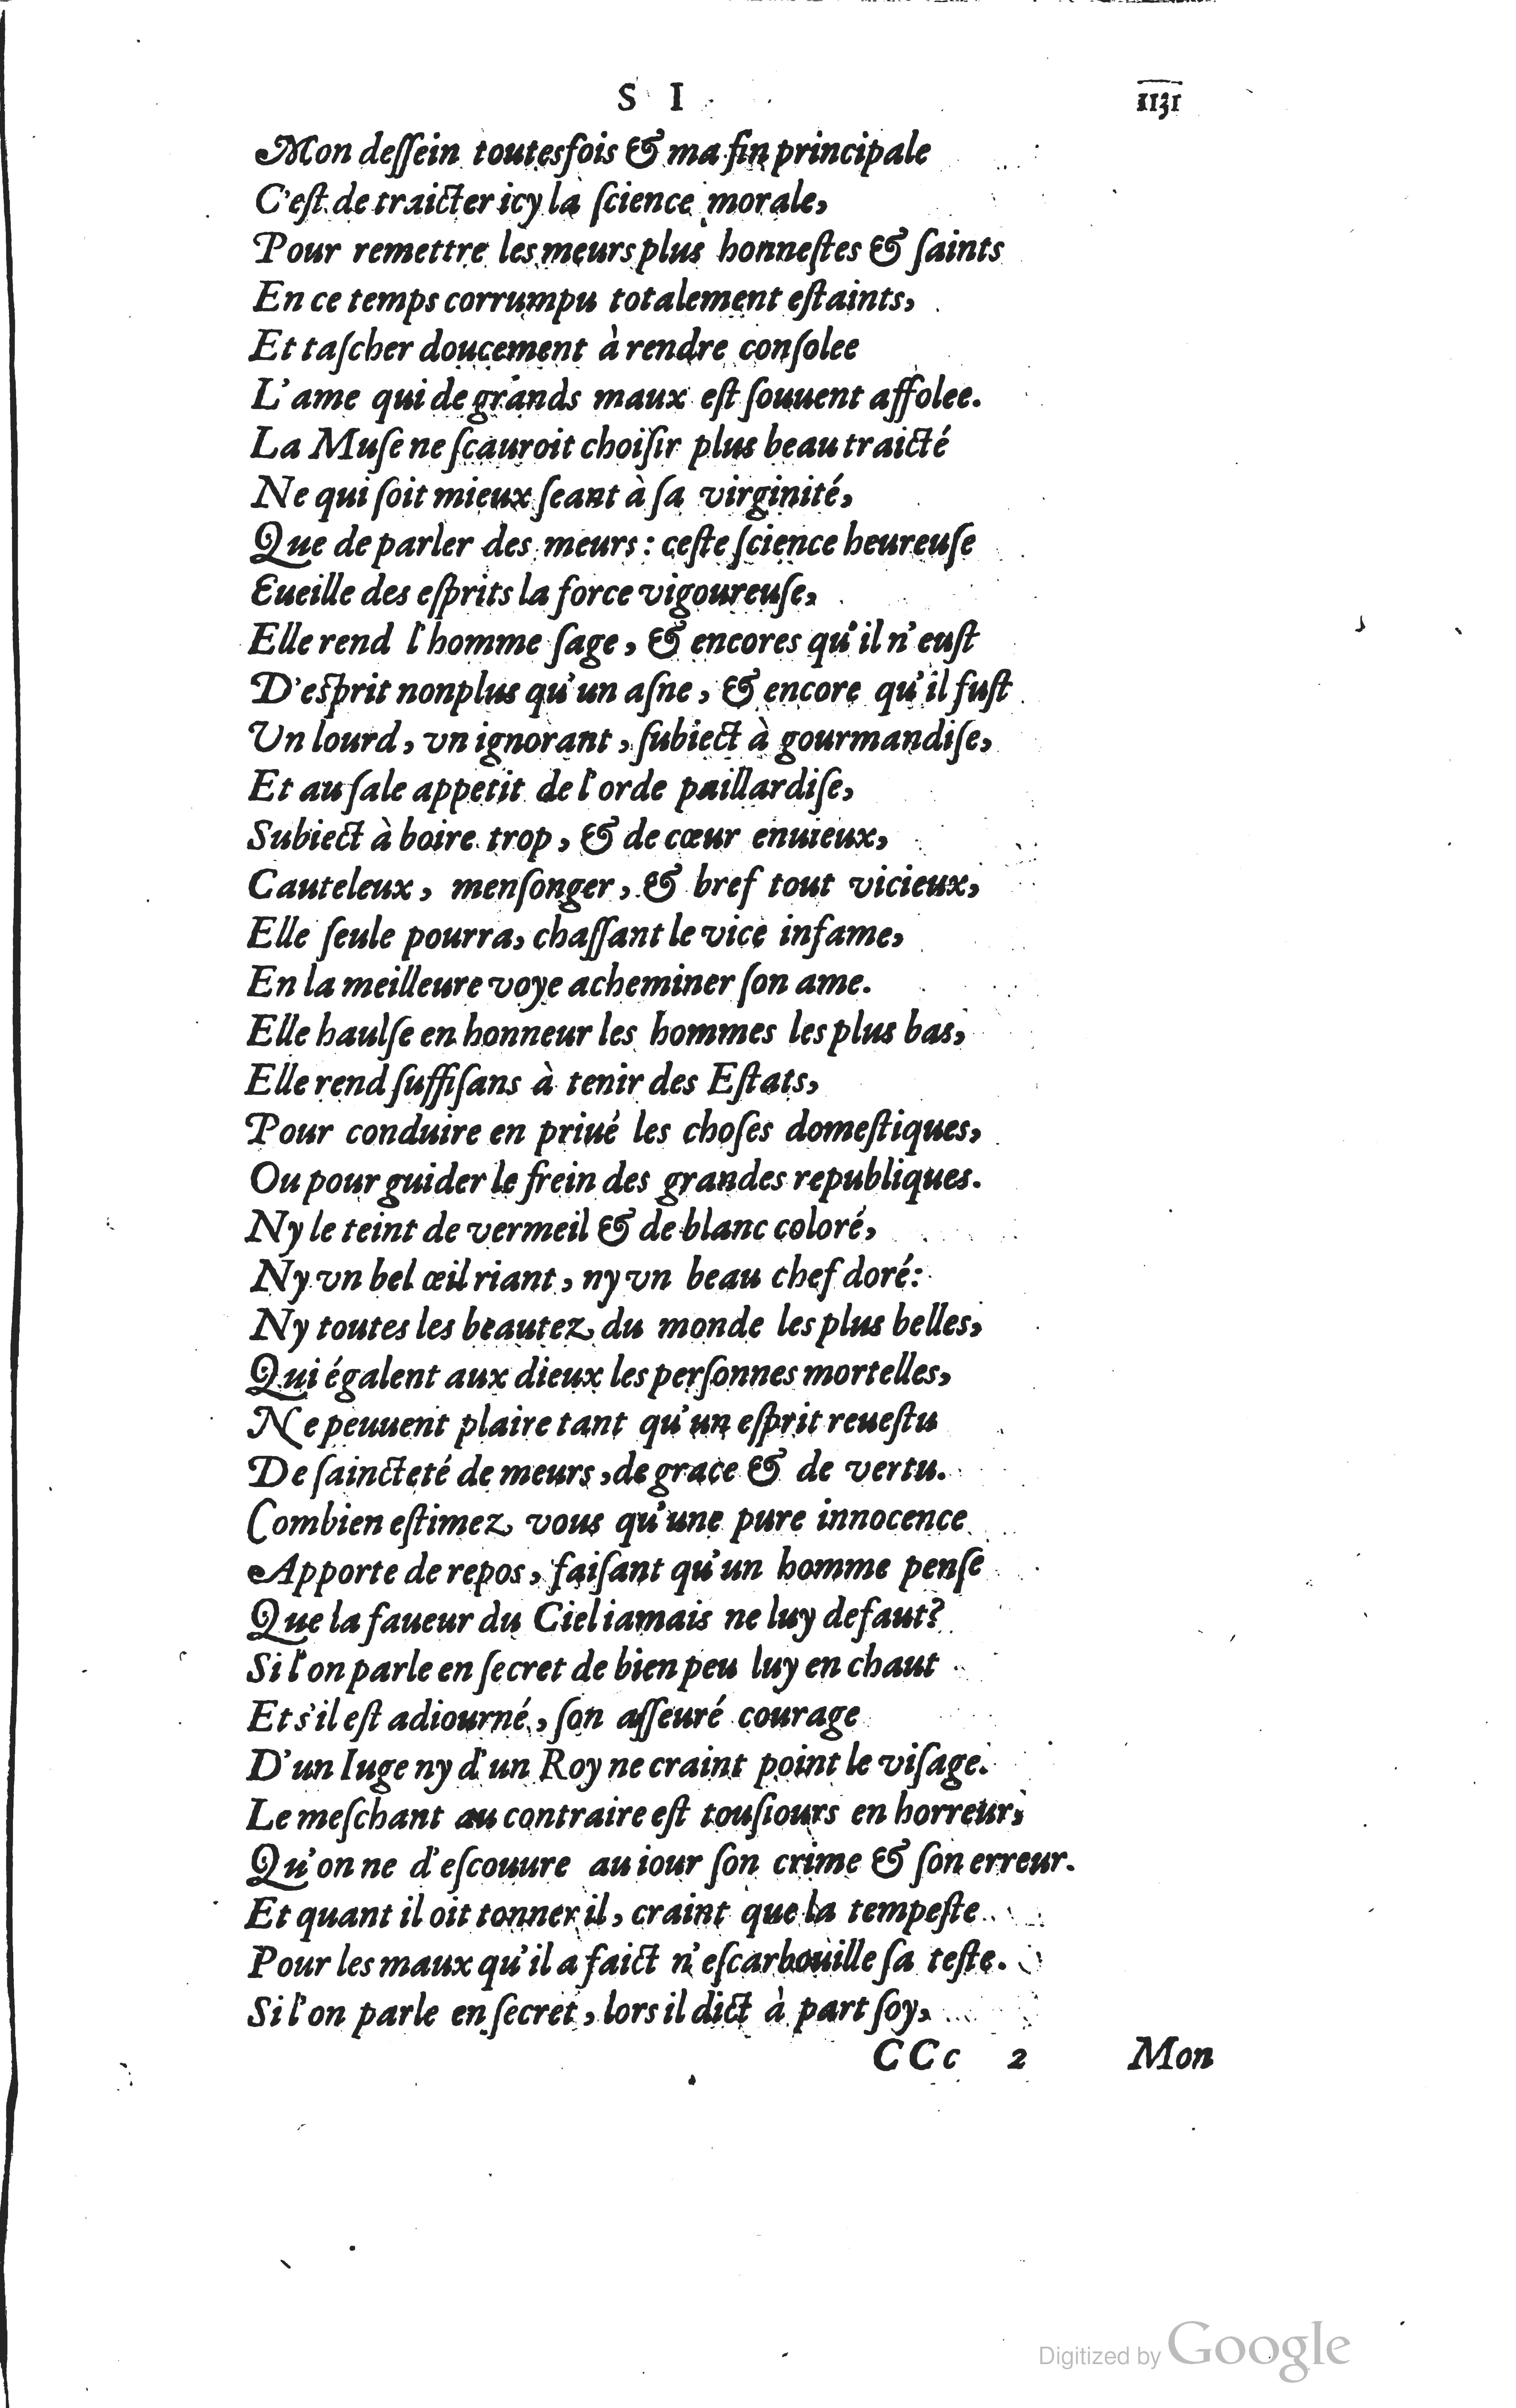 S I 1131
Mon deſſein toutesfois & ma fin principale
C'eſt de traicter icy la ſcience morale,
Pour remettre les meurs plus honneſtes & ſaints
En ce temps corrumpu totalement eſtaints,
Et taſcher doucement à rendre conſolee
L'ame qui de grands maux eſt ſouuent affolee.
La Muſe ne ſcauroit choiſir plus beau traicté
Ne qui ſoit mieux ſeant à ſa virginité,
Que de parler des meurs : ceſte ſcience heureuſe
Eueille des eſprits la force vigoureuſe,
Elle rend l'homme ſage, & encores qu'il n'euſt
D'eſprit nonplus qu'un aſne, & encore qu'il fuſt
Un lourd, vn ignorant, ſubiect à gourmandiſe,
Et au ſale appetit de l'orde paillardiſe,
Subiect à boire trop, & de cœur enuieux,
Cauteleux, menſonger, & bref tout vicieux,
Elle ſeule pourra, chaſſant le vice infame,
En la meilleure voye acheminer ſon ame.
Elle haulſe en honneur les hommes les plus bas,
Elle rend ſuffiſans à tenir des Eſtats,
Pour conduire en priué les choſes domeſtiques,
Ou pour guider le frein des grandes republiques.
Ny le teint de vermeil & de blanc coloré,
Ny vn bel œil riant, ny vn beau chef doré:
Ny toutes les beautez du monde les plus belles,
Qui égalent aux dieux les perſonnes mortelles,
Ne peuuent plaire tant qu'un eſprit reueſtu
De ſaincteté de meurs, de grace & de vertu.
Combien eſtimez vous qu'une pure innocence
Apporte de repos, faiſant qu'un homme penſe
Que la faueur du Ciel iamais ne luy defaut?
Si l'on parle en ſecret de bien peu luy en chaut
Et s'il eſt adiourné, ſon aſſeuré courage
D'un Iuge ny d'un Roy ne craint point le viſage.
Le meſchant au contraire eſt touſiours en horreur,
Qu'on ne d'eſcouure au iour ſon crime & ſon erreur.
Et quant il oit tonner il, craint que la tempeſte
Pour les maux qu'il a faict n'eſcarbouille ſa teſte.
Si l'on parle en ſecret, lors il dict à part ſoy,
CCc 2 Mon
Digitized by Google